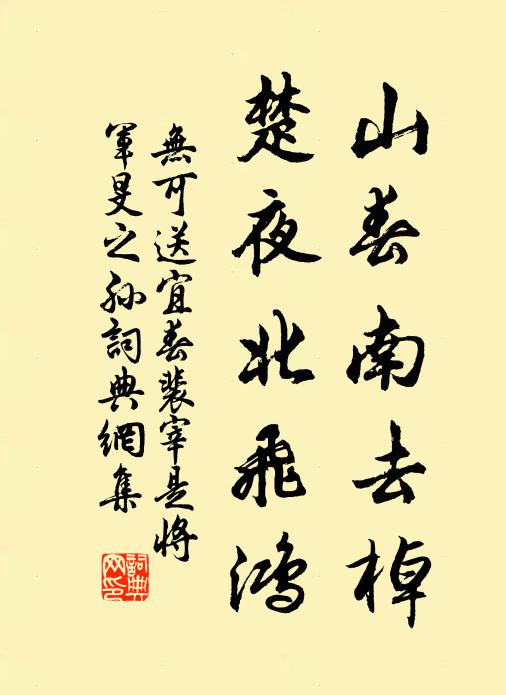 山春南去棹
楚夜北飛鴻
無可送宜春裴宰是將
軍旻之孫詞典網集
詞典
网印